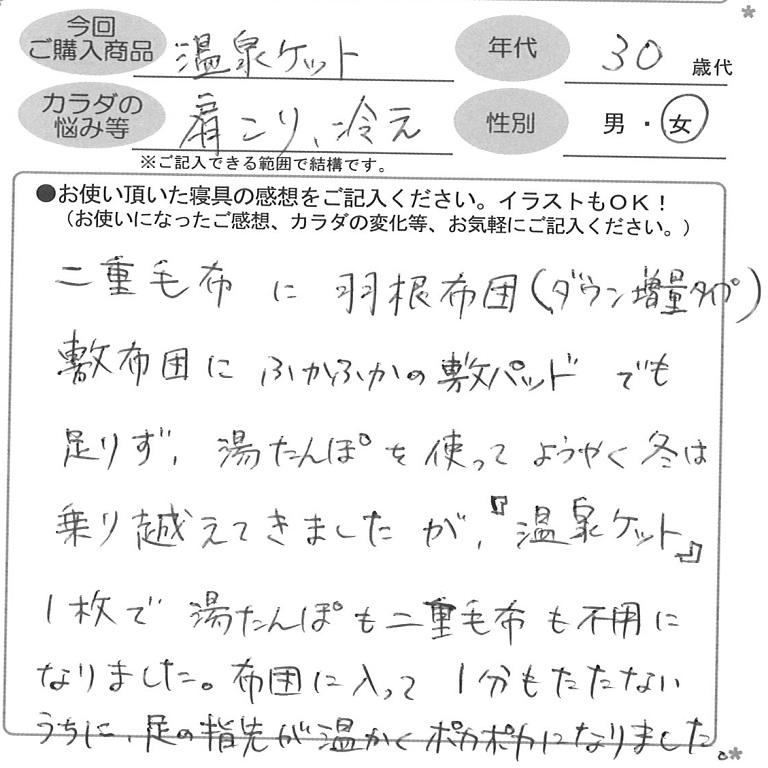 今回ご購入商品 温泉ケット 年代 30 歳代
カラダの悩み等 肩こり、冷え 性別 男・女
※ご記入できる範囲で結構です。
●お使い頂いた寝具の感想をご記入ください。イラストもOK！
（お使いになったご感想、カラダの変化等、お気軽にご記入ください。）
二重毛布に羽根布団(ダウン増量タイプ)
敷布団にふかふかの敷パッドでも
足りず、湯たんぽを使ってようやく冬は
乗り越えてきましたが、『温泉ケット』
1枚で湯たんぽも二重毛布も不用に
なりました。布団に入って1分もたたない
うちに、足の指先が温かくポカポカになりました。